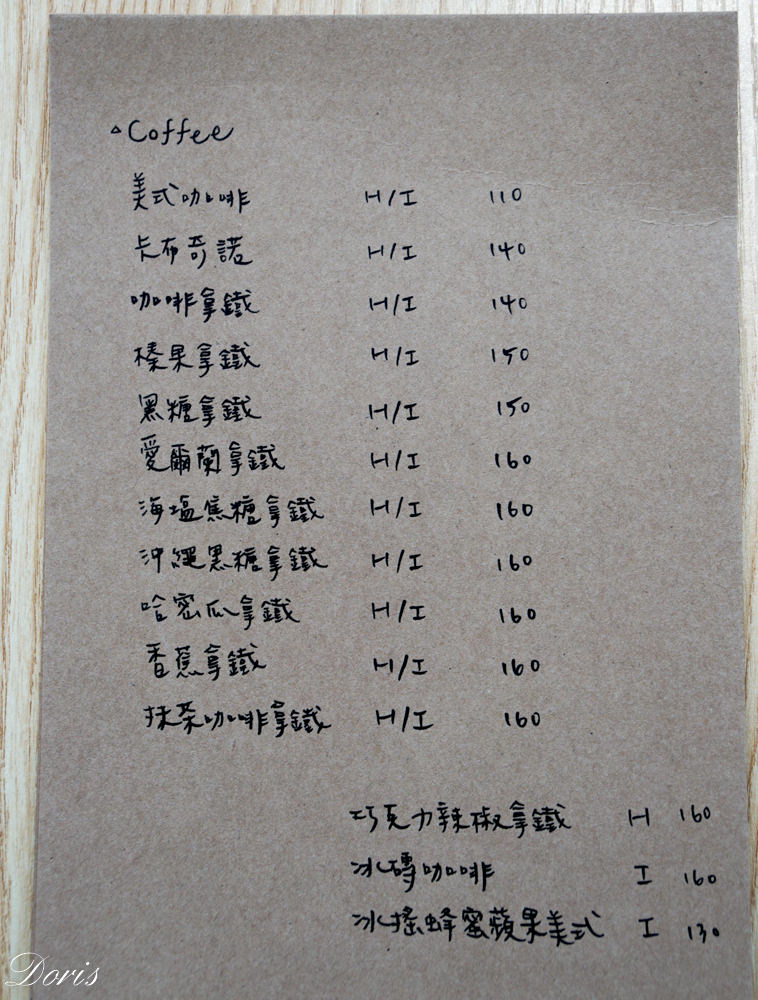 △Coffee
美式咖啡 H/I 110
卡布奇諾 H/I 140
咖啡拿鐵 H/I 140
榛果拿鐵 H/I 150
黑糖拿鐵 H/I 150
愛爾蘭拿鐵 H/I 160
海塩焦糖拿鐵 H/I 160
沖繩黑糖拿鐵 H/I 160
哈密瓜拿鐵 H/I 160
香蕉拿鐵 H/I 160
抹茶咖啡拿鐵 H/I 160
巧克力辣椒拿鐵 H 160
冰磚咖啡 I 160
冰搖蜂蜜蘋果美式 I 130
Doris